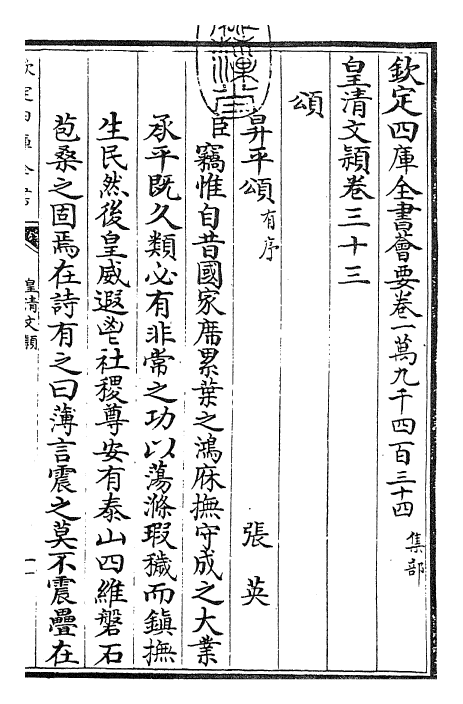 欽定四庫全書薈要卷一萬九千四百三十四 集部
皇清文穎卷三十三
頌
昇平頌有序 張英
臣竊惟自昔國家席累葉之鴻庥撫守成之大業
承平既久類必有非常之功以蕩滌瑕穢而鎮撫
生民然後皇威遐鬯社稷尊安有泰山四維磐石
苞桑之固焉在詩有之曰薄言震之莫不震疊在
欽定四庫全書
皇清文穎
一